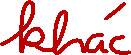 khác